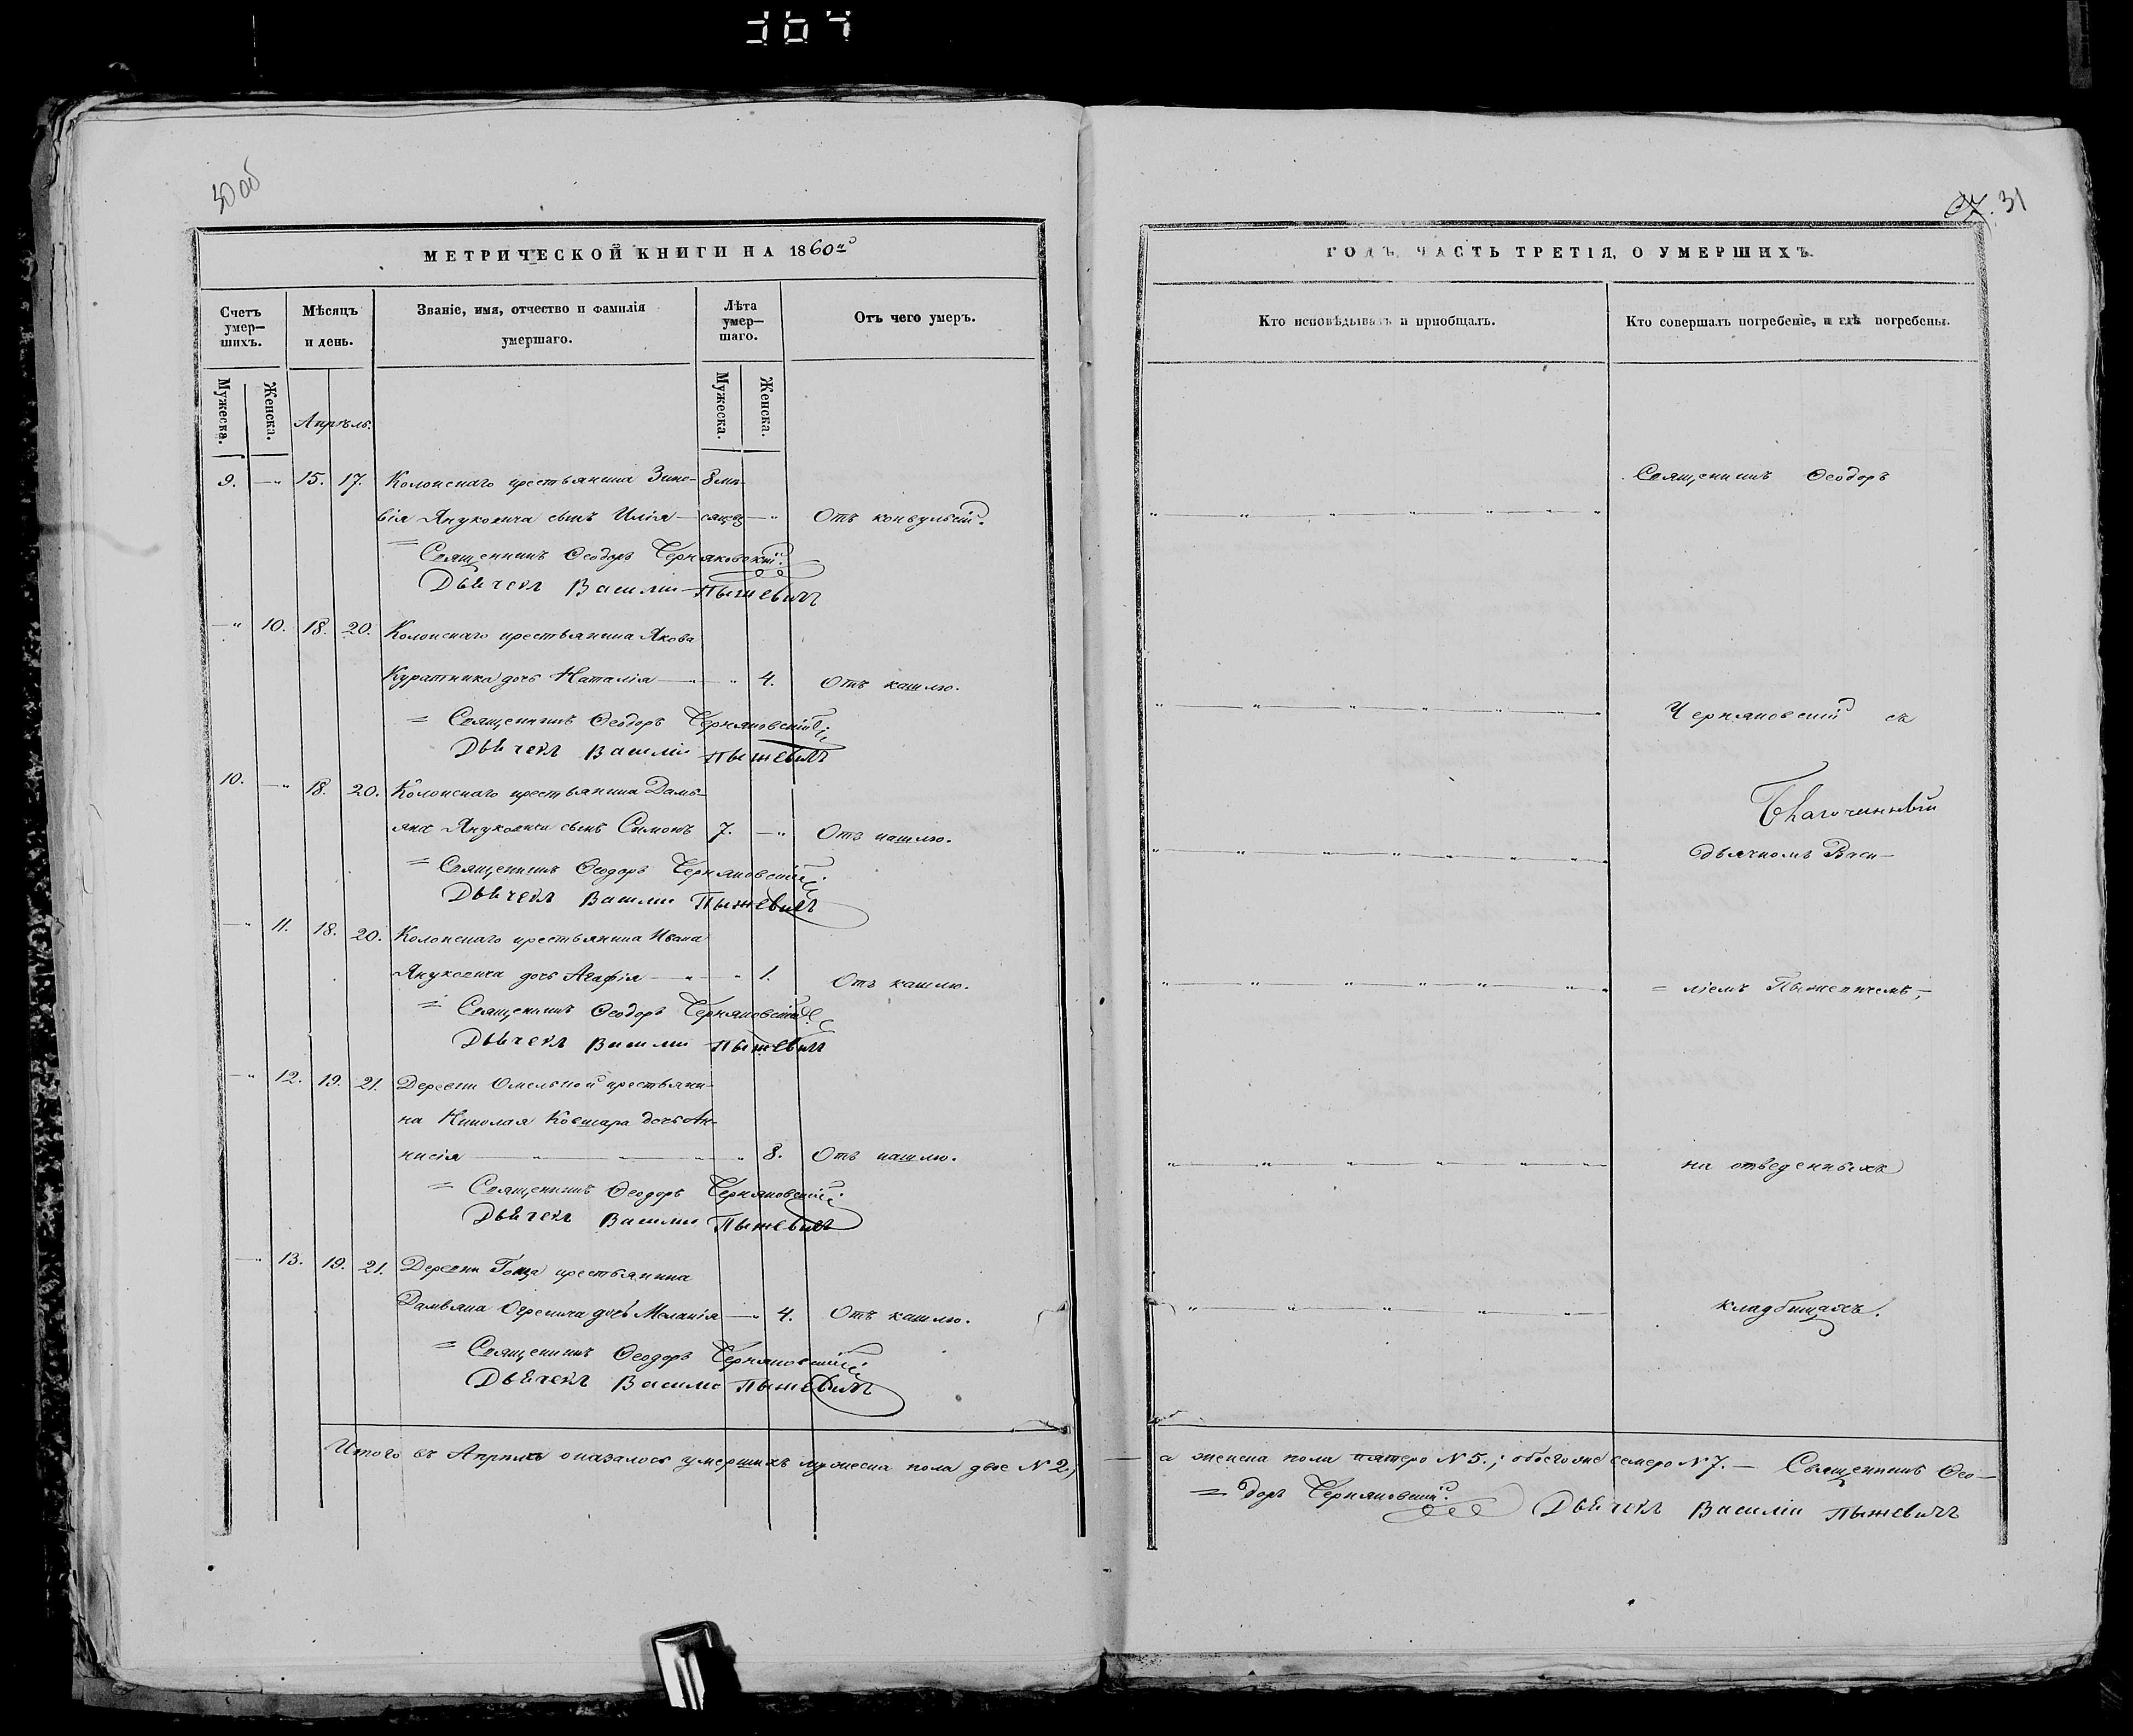 367
30 об
МЕТРИЧЕСКОЙ КНИГИ НА 1860й
Счетъ умер—шихъ.
Мѣсяцъ и день.
Званіе, имя, отчество и фамилія умершаго.
Лѣта умер—шаго.
Отъ чего умеръ.
Мужеска. Женска.
Апрѣль.
Мужеска. Женска.
9. —„ 15. 17. Колонскаго крестьянина Зино- 8 мѣ-
вія Януковича сынъ Илія — сяцев —„ Отъ конвульсій.
= Священникъ Ѳеодоръ Черняковскій.
Дьячекъ Василій Пыжевичъ
—„ 10. 18. 20. Колонскаго крестьянина Якова
Куратника дочь Наталія —„—„ 4. Отъ кашлю.
= Священникъ Ѳеодоръ Черняковскій
Дьячекъ Василій Пыжевичъ
10. —„ 18. 20. Колонскаго крестьянина Дамь-
яна Януковича сынъ Симонъ 7. —„ Отъ кашлю.
= Священникъ Ѳеодоръ Черняковскій
Дьячекъ Василій Пыжевичъ
—„ 11. 18. 20. Колонскаго крестьянина Ивана
Януковича дочь Агафія —„—„ 1. Отъ кашлю.
= Священникъ Ѳеодоръ Черняковскій
Дьячекъ Василій Пыжевичъ
—„ 12. 19. 21. Деревни Омельной крестьяни-
на Николая Ковшара дочь Ан-
нисія —„—„—„ 8. Отъ кашлю.
= Священникъ Ѳеодоръ Черняковскій
Дьячекъ Василій Пыжевичъ
—„ 13. 19. 21. Деревни крестьянина
Дамьяна дочь Меланія —„ 4. Отъ кашлю.
= Священникъ Ѳеодоръ Черняковскій
Дьячекъ Василій Пыжевичъ
Итого въ Апрѣлѣ оказалось умершихъ мужеска пола двое № 2,
31
ГОДЪ, ЧАСТЬ ТРЕТІЯ, О УМЕРШИХЪ.
Кто исповѣдывалъ и пріобщалъ.
Кто совершалъ погребеніе, и гдѣ погребены.
Священникъ Ѳеодоръ
Черняковскій съ
Благочинный
дьячкомъ Васи-
= ліемъ Пыжевичемъ,
на отведенныхъ
кладбищахъ.
— а женска пола пятеро № 5.; обоего же семеро № 7. — Священникъ Ѳео—
= доръ Черняковскій. Дьячекъ Василій Пыжевичъ